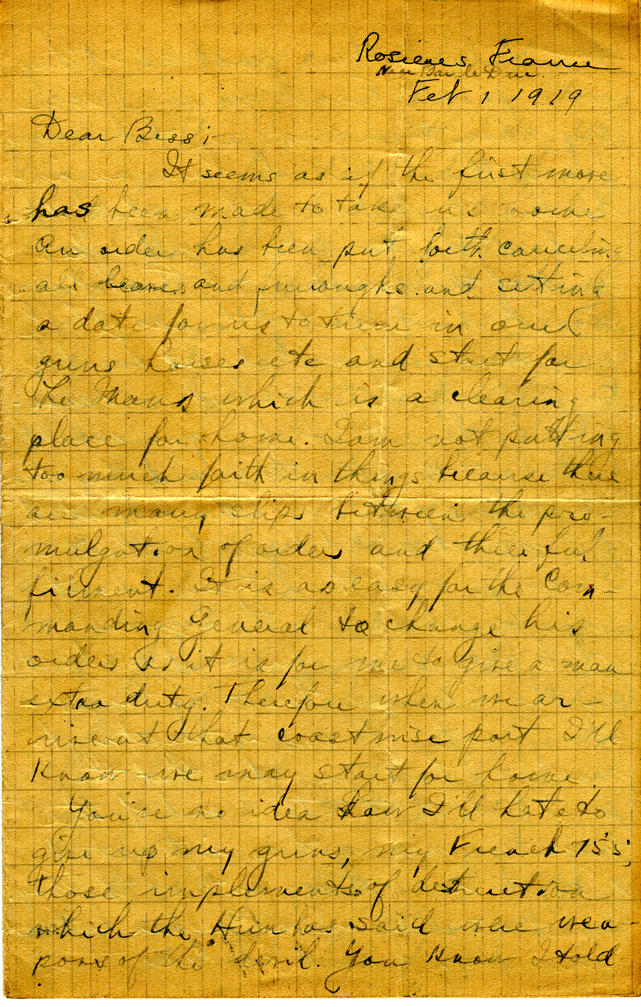 Rosieres, France
Near Bar le Duc.
Feb 1 1919
Dear Bess;
It seems as if the first move
has been made to take us home
An order has been put forth canceling
all leaves and furoughs and setting
a date for us to turn in our
guns horses etc and start for
the Mans which is a clearing
place for home. I am not putting
too much faith in things because there
are many slips between the pro-
mulgation of orders and their ful
fillment. It is as easy for the Com-
manding General to change his
orders as it is for me to give a man
extra duty. Therefore when we ar-
rive at that coastwise port I'll
know we may start for home.
You've no idea how I'll hate to
give up my guns, my French 75's,
those implements of destruction
which the Hun has said were wea-
pons of the devil. You know I told